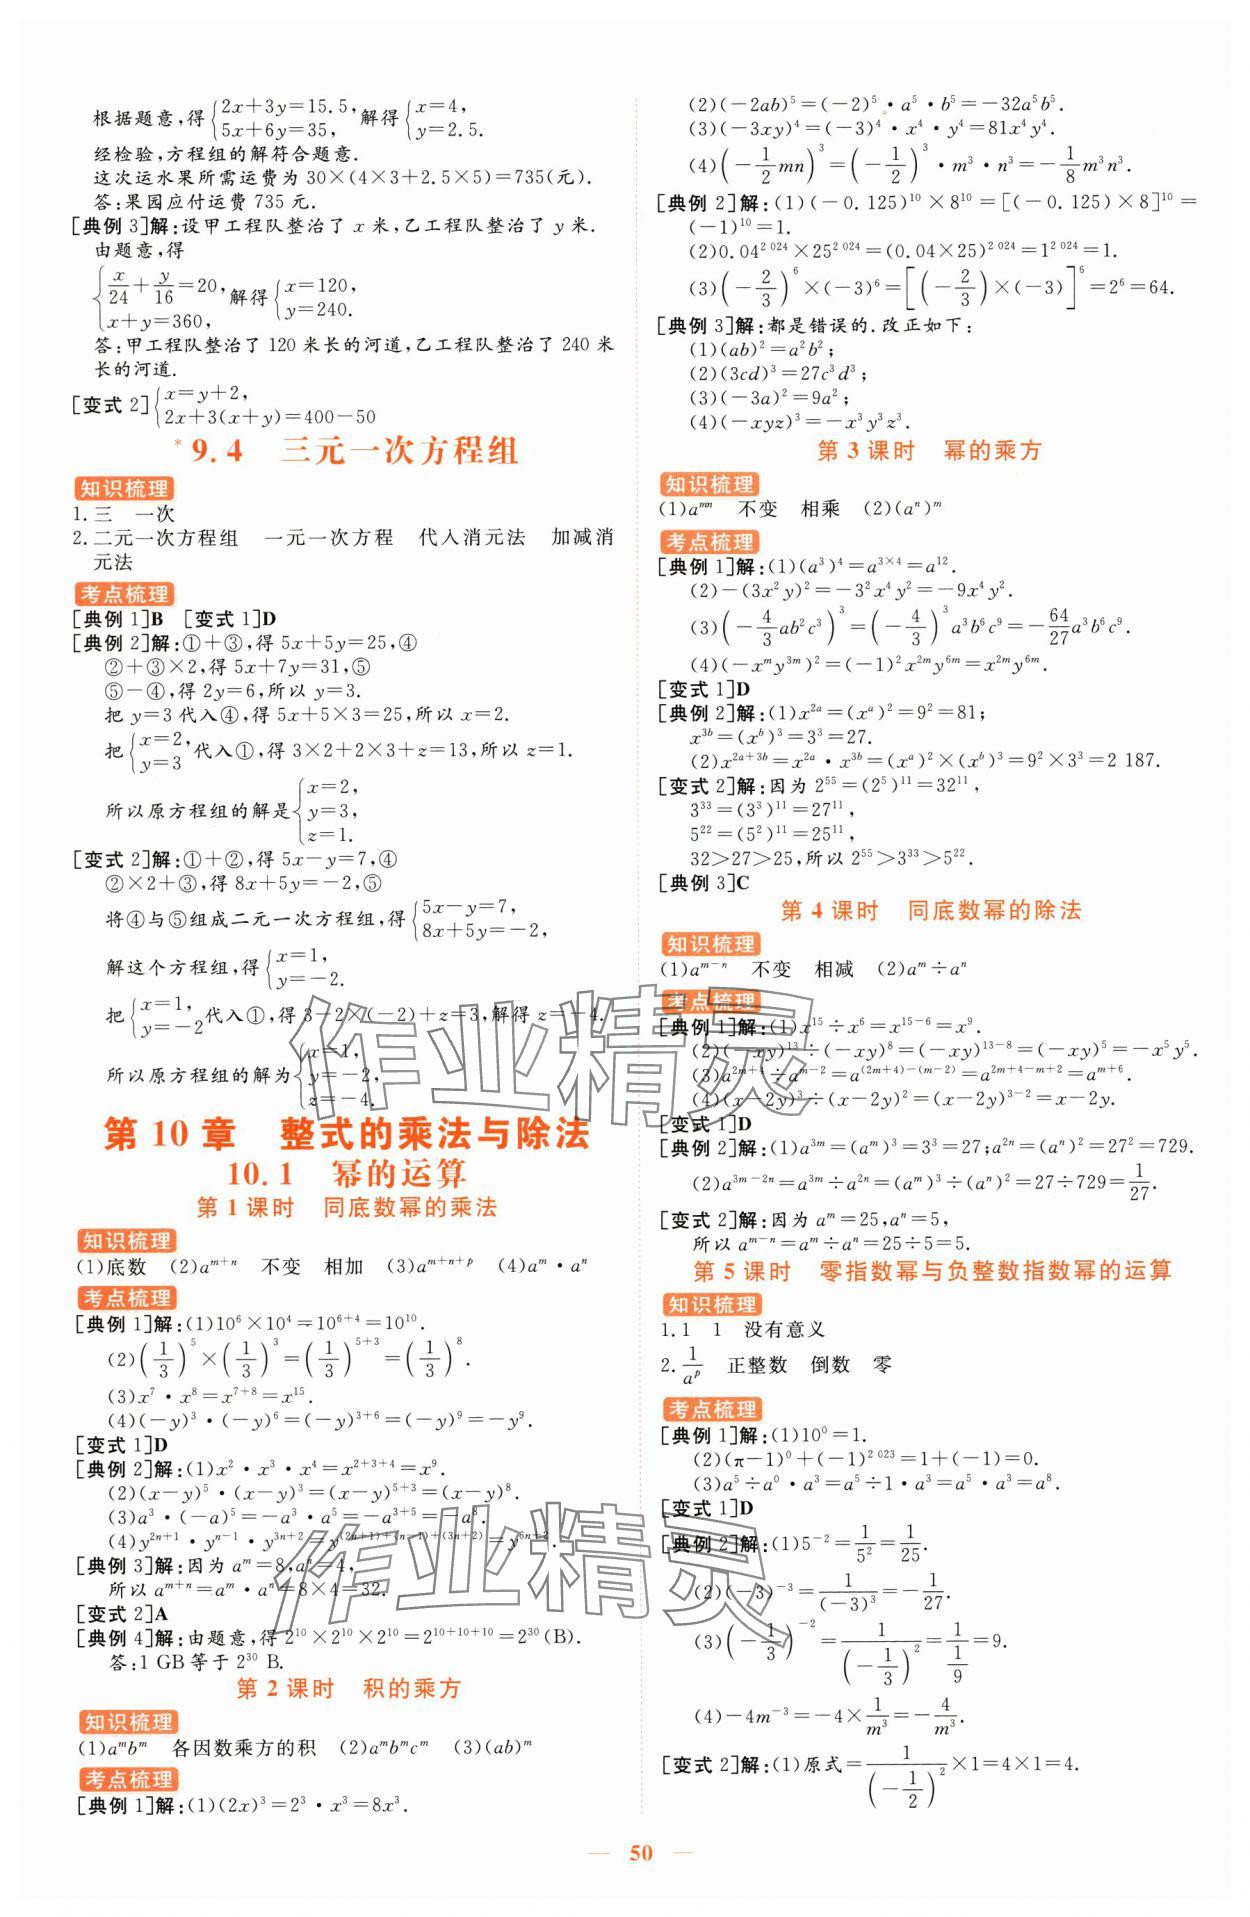 根据题意,得{2x+3y=15.5, 5x+6y=35, 解得{x=4, y=2.5.
经检验,方程组的解符合题意.
这次运水果所需运费为 30×(4×3+2.5×5)=735(元).
答:果园应付运费 735 元.
[典例 3]解:设甲工程队整治了 x 米,乙工程队整治了 y 米.
由题意,得
{x/24+y/16=20, x+y=360, 解得{x=120, y=240.
答:甲工程队整治了 120 米长的河道,乙工程队整治了 240 米
长的河道.
[变式 2]{x=y+2, 2x+3(x+y)=400-50
*9.4 三元一次方程组
知识梳理
1.三 一次
2.二元一次方程组 一元一次方程 代入消元法 加减消
元法
考点梳理
[典例 1]B [变式 1]D
[典例 2]解:①+③,得 5x+5y=25,④
②+③×2,得 5x+7y=31,⑤
⑤-④,得 2y=6,所以 y=3.
把 y=3 代入④,得 5x+5×3=25,所以 x=2.
把{x=2, y=3 代入①,得 3×2+2×3+z=13,所以 z=1.
所以原方程组的解是{x=2, y=3, z=1.
[变式 2]解:①+②,得 5x-y=7,④
②×2+③,得 8x+5y=-2,⑤
将④与⑤组成二元一次方程组,得{5x-y=7, 8x+5y=-2,
解这个方程组,得{x=1, y=-2.
把{x=1, y=-2 代入①,得 3-2×(-2)+z=3,解得 z=-4.
所以原方程组的解为{x=1, y=-2, z=-4.
第 10 章 整式的乘法与除法
10.1 幂的运算
第 1 课时 同底数幂的乘法
知识梳理
(1)底数 (2)a^{m+n} 不变 相加 (3)a^{m+n+p} (4)a^m·a^n
考点梳理
[典例 1]解:(1)10^6×10^4=10^{6+4}=10^{10}.
(2)(1/3)^5×(1/3)^3=(1/3)^{5+3}=(1/3)^8.
(3)x^7·x^8=x^{7+8}=x^{15}.
(4)(-y)^3·(-y)^6=(-y)^{3+6}=(-y)^9=-y^9.
[变式 1]D
[典例 2]解:(1)x^2·x^3·x^4=x^{2+3+4}=x^9.
(2)(x-y)^5·(x-y)^3=(x-y)^{5+3}=(x-y)^8.
(3)a^3·(-a)^5=-a^3·a^5=-a^{3+5}=-a^8.
(4)y^{2n+1}·y^{n-1}·y^{3n+2}=y^{(2n+1)+(n-1)+(3n+2)}=y^{6n+2}.
[典例 3]解:因为 a^m=8,a^n=4,
所以 a^{m+n}=a^m·a^n=8×4=32.
[变式 2]A
[典例 4]解:由题意,得 2^{10}×2^{10}×2^{10}=2^{10+10+10}=2^{30}(B).
答:1 GB等于 2^{30} B.
第 2 课时 积的乘方
知识梳理
(1)a^m b^m 各因数乘方的积 (2)a^m b^m c^m (3)(ab)^m
考点梳理
[典例 1]解:(1)(2x)^3=2^3·x^3=8x^3.
(2)(-2ab)^5=(-2)^5·a^5·b^5=-32a^5b^5.
(3)(-3xy)^4=(-3)^4·x^4·y^4=81x^4y^4.
(4)(-1/2 mn)^3=(-1/2)^3·m^3·n^3=-1/8 m^3n^3.
[典例 2]解:(1)(-0.125)^{10}×8^{10}=[(-0.125)×8]^{10}=
(-1)^{10}=1.
(2)0.04^{2 024}×25^{2 024}=(0.04×25)^{2 024}=1^{2 024}=1.
(3)(-2/3)^6×(-3)^6=[(-2/3)×(-3)]^6=2^6=64.
[典例 3]解:都是错误的.改正如下:
(1)(ab)^2=a^2b^2;
(2)(3cd)^3=27c^3d^3;
(3)(-3a)^2=9a^2;
(4)(-xyz)^3=-x^3y^3z^3.
第 3 课时 幂的乘方
知识梳理
(1)a^{mn} 不变 相乘 (2)(a^n)^m
考点梳理
[典例 1]解:(1)(a^3)^4=a^{3×4}=a^{12}.
(2)-(3x^2y)^2=-3^2x^4y^2=-9x^4y^2.
(3)(-4/3 ab^2c^3)^3=(-4/3)^3a^3b^6c^9=-64/27 a^3b^6c^9.
(4)(-x^my^{3m})^2=(-1)^2x^{2m}y^{6m}=x^{2m}y^{6m}.
[变式 1]D
[典例 2]解:(1)x^{2a}=(x^a)^2=9^2=81;
x^{3b}=(x^b)^3=3^3=27.
(2)x^{2a+3b}=x^{2a}·x^{3b}=(x^a)^2×(x^b)^3=9^2×3^3=2 187.
[变式 2]解:因为 2^{55}=(2^5)^{11}=32^{11},
3^{33}=(3^3)^{11}=27^{11},
5^{22}=(5^2)^{11}=25^{11},
32>27>25,所以 2^{55}>3^{33}>5^{22}.
[典例 3]C
第 4 课时 同底数幂的除法
知识梳理
(1)a^{m-n} 不变 相减 (2)a^m÷a^n
考点梳理
[典例 1]解:(1)x^{15}÷x^6=x^{15-6}=x^9.
(2)(-xy)^{13}÷(-xy)^8=(-xy)^{13-8}=(-xy)^5=-x^5y^5.
(3)a^{2m+4}÷a^{m-2}=a^{(2m+4)-(m-2)}=a^{2m+4-m+2}=a^{m+6}.
(4)(x-2y)^3÷(x-2y)^2=(x-2y)^{3-2}=x-2y.
[变式 1]D
[典例 2]解:(1)a^{3m}=(a^m)^3=3^3=27;a^{2n}=(a^n)^2=27^2=729.
(2)a^{3m-2n}=a^{3m}÷a^{2n}=(a^m)^3÷(a^n)^2=27÷729=1/27.
[变式 2]解:因为 a^m=25,a^n=5,
所以 a^{m-n}=a^m÷a^n=25÷5=5.
第 5 课时 零指数幂与负整数指数幂的运算
知识梳理
1.1 1 没有意义
2.1/a^p 正整数 倒数 零
考点梳理
[典例 1]解:(1)10^0=1.
(2)(π-1)^0+(-1)^{2 023}=1+(-1)=0.
(3)a^5÷a^0·a^3=a^5÷1·a^3=a^5·a^3=a^8.
[变式 1]D
[典例 2]解:(1)5^{-2}=1/5^2=1/25.
(2)(-3)^{-3}=1/(-3)^3=-1/27.
(3)(-1/3)^{-2}=1/(-1/3)^2=1/(1/9)=9.
(4)-4m^{-3}=-4×1/m^3=-4/m^3.
[变式 2]解:(1)原式=1/(-1/2)^2×1=4×1=4.
50
作业精灵
作业精灵